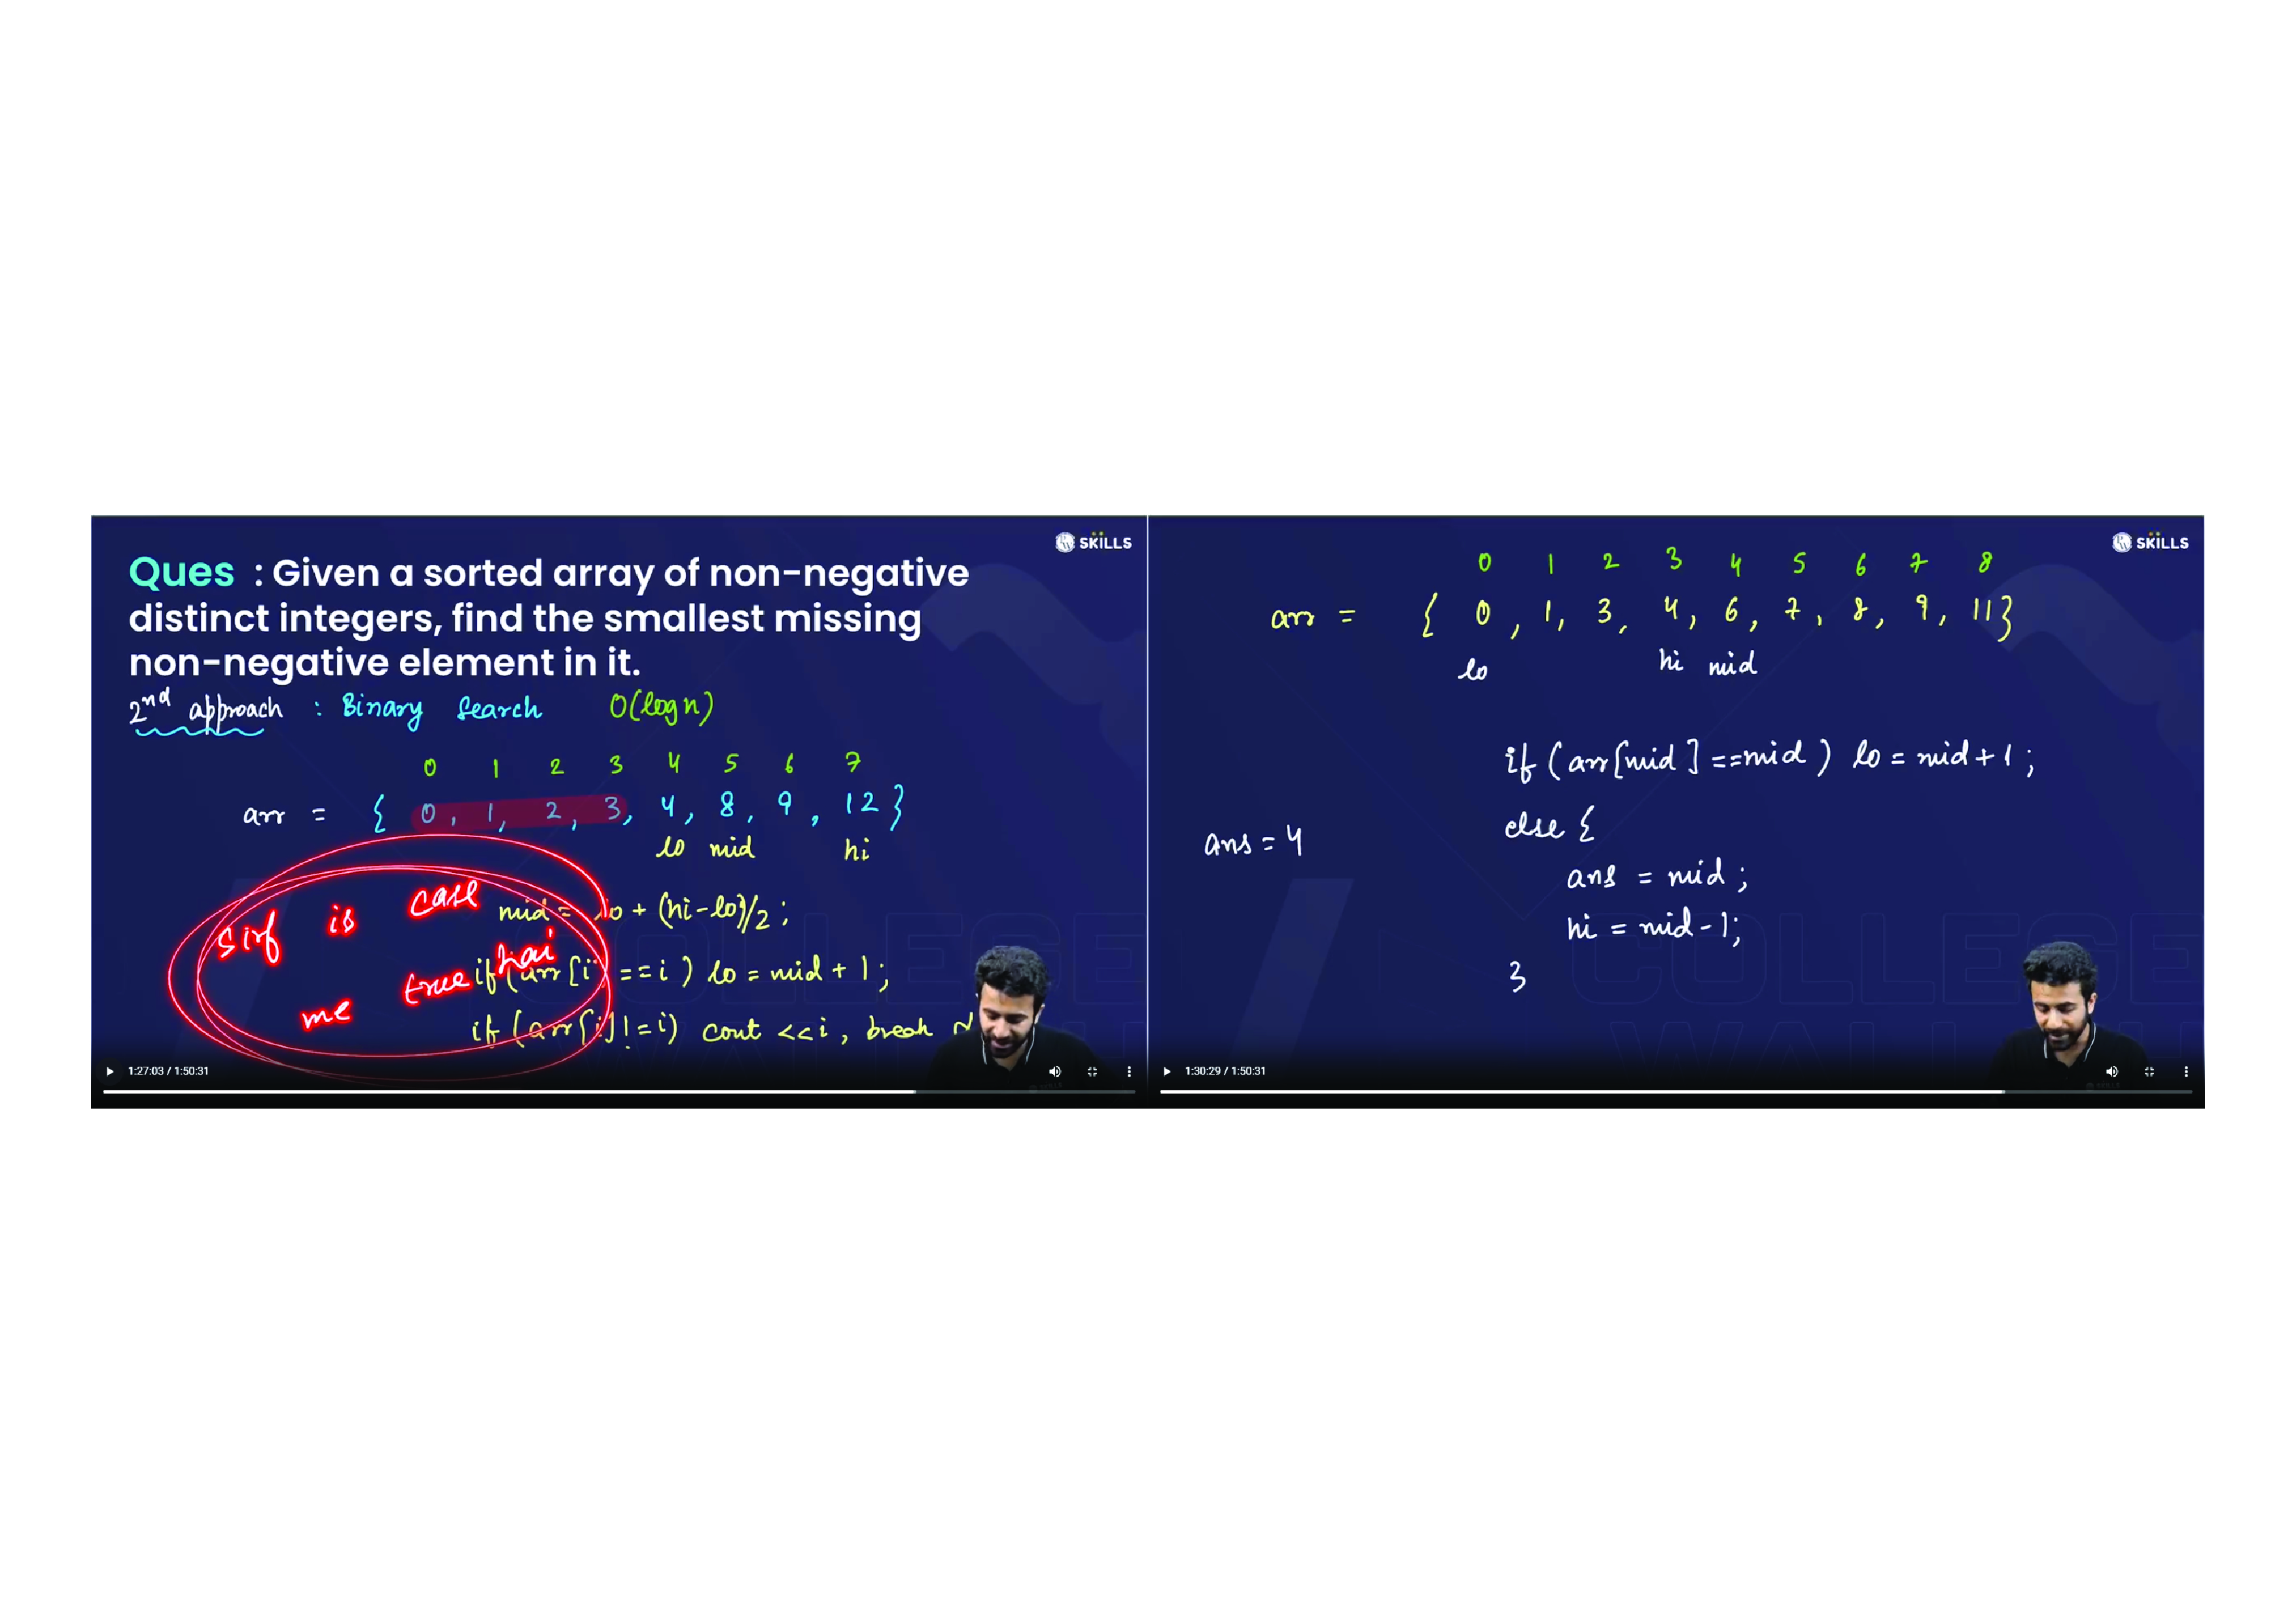 SKILLS
Ques : Given a sorted array of non-negative
distinct integers, find the smallest missing
non-negative element in it.
2nd approach : Binary Search O(log n)
0 1 2 3 4 5 6 7
arr = { 0, 1, 2, 3, 4, 8, 9, 12 }
lo mid hi
sirf is case
me true hai
mid = lo + (hi-lo)/2 ;
if (arr[i] == i) lo = mid + 1 ;
if (arr[i] != i) cout << i , break
COLLEGE
WALLAH
1:27:03 / 1:50:31
SKILLS
0 1 2 3 4 5 6 7 8
arr = { 0, 1, 3, 4, 6, 7, 8, 9, 11}
lo hi mid
if (arr[mid] == mid) lo = mid + 1 ;
else {
ans = 4
ans = mid ;
hi = mid - 1;
}
COLLEGE
WALLAH
1:30:29 / 1:50:31